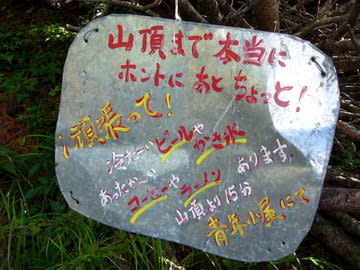 山頂まで本当に
ホントにあとちょっと!
頑張って!
冷たいビールやかき氷
あったか〜いコーヒーやラーメン あります。
山頂より15分
青年小屋にて